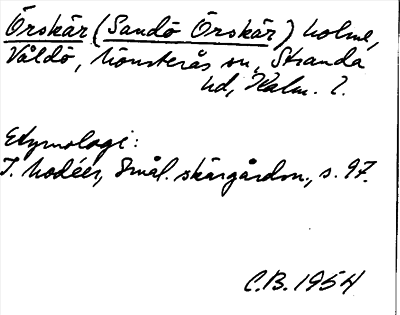 Örskär (Sandö Örskär) holme,
Våldö, Mönsterås sn, Stranda
hd, Kalm. l.
Etymologi:
I. Modéer, Smål. skärgårdsn., s. 97.
C.B. 1954